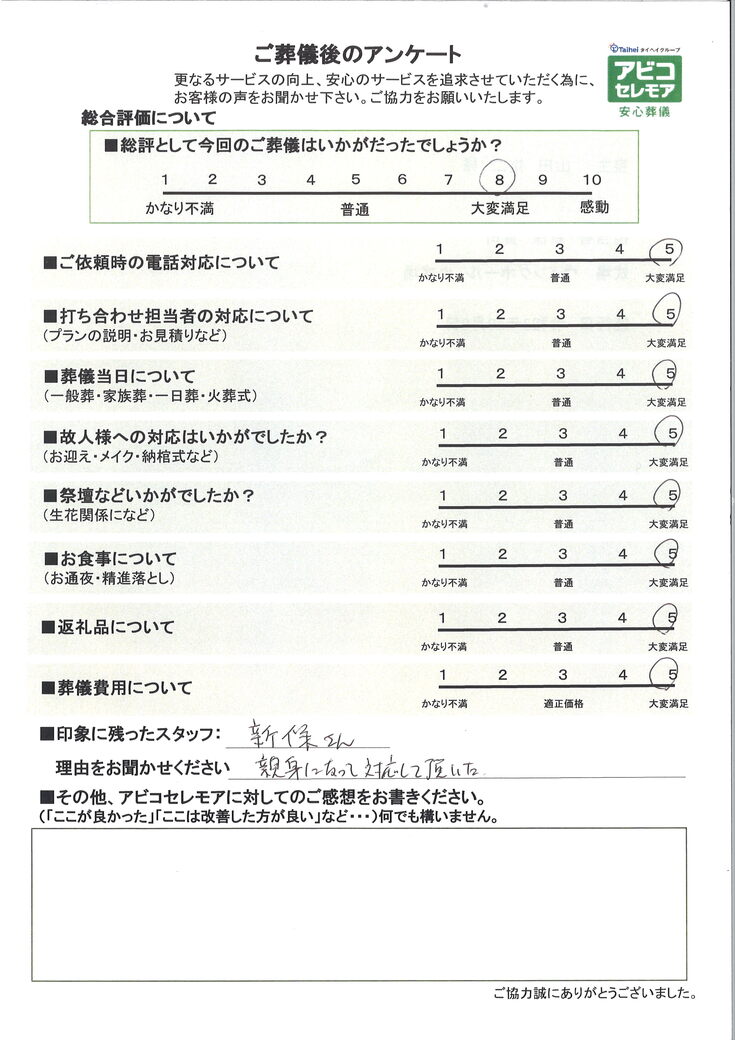 ご葬儀後のアンケート
Taihei タイヘイグループ
アビコ
セレモア
安心葬儀
更なるサービスの向上、安心のサービスを追求させていただく為に、
お客様の声をお聞かせ下さい。ご協力をお願いいたします。
総合評価について
■総評として今回のご葬儀はいかがだったでしょうか？
1 2 3 4 5 6 7 8 9 10
かなり不満 普通 大変満足 感動
■ご依頼時の電話対応について
1 2 3 4 5
かなり不満 普通 大変満足
■打ち合わせ担当者の対応について
(プランの説明・お見積りなど)
1 2 3 4 5
かなり不満 普通 大変満足
■葬儀当日について
(一般葬・家族葬・一日葬・火葬式)
1 2 3 4 5
かなり不満 普通 大変満足
■故人様への対応はいかがでしたか？
(お迎え・メイク・納棺式など)
1 2 3 4 5
かなり不満 普通 大変満足
■祭壇などいかがでしたか？
(生花関係になど)
1 2 3 4 5
かなり不満 普通 大変満足
■お食事について
(お通夜・精進落とし)
1 2 3 4 5
かなり不満 普通 大変満足
■返礼品について
1 2 3 4 5
かなり不満 普通 大変満足
■葬儀費用について
1 2 3 4 5
かなり不満 適正価格 大変満足
■印象に残ったスタッフ： 新保さん
理由をお聞かせください 親身になって対応して頂いた
■その他、アビコセレモアに対してのご感想をお書きください。
(「ここが良かった」「ここは改善した方が良い」など・・・)何でも構いません。
ご協力誠にありがとうございました。